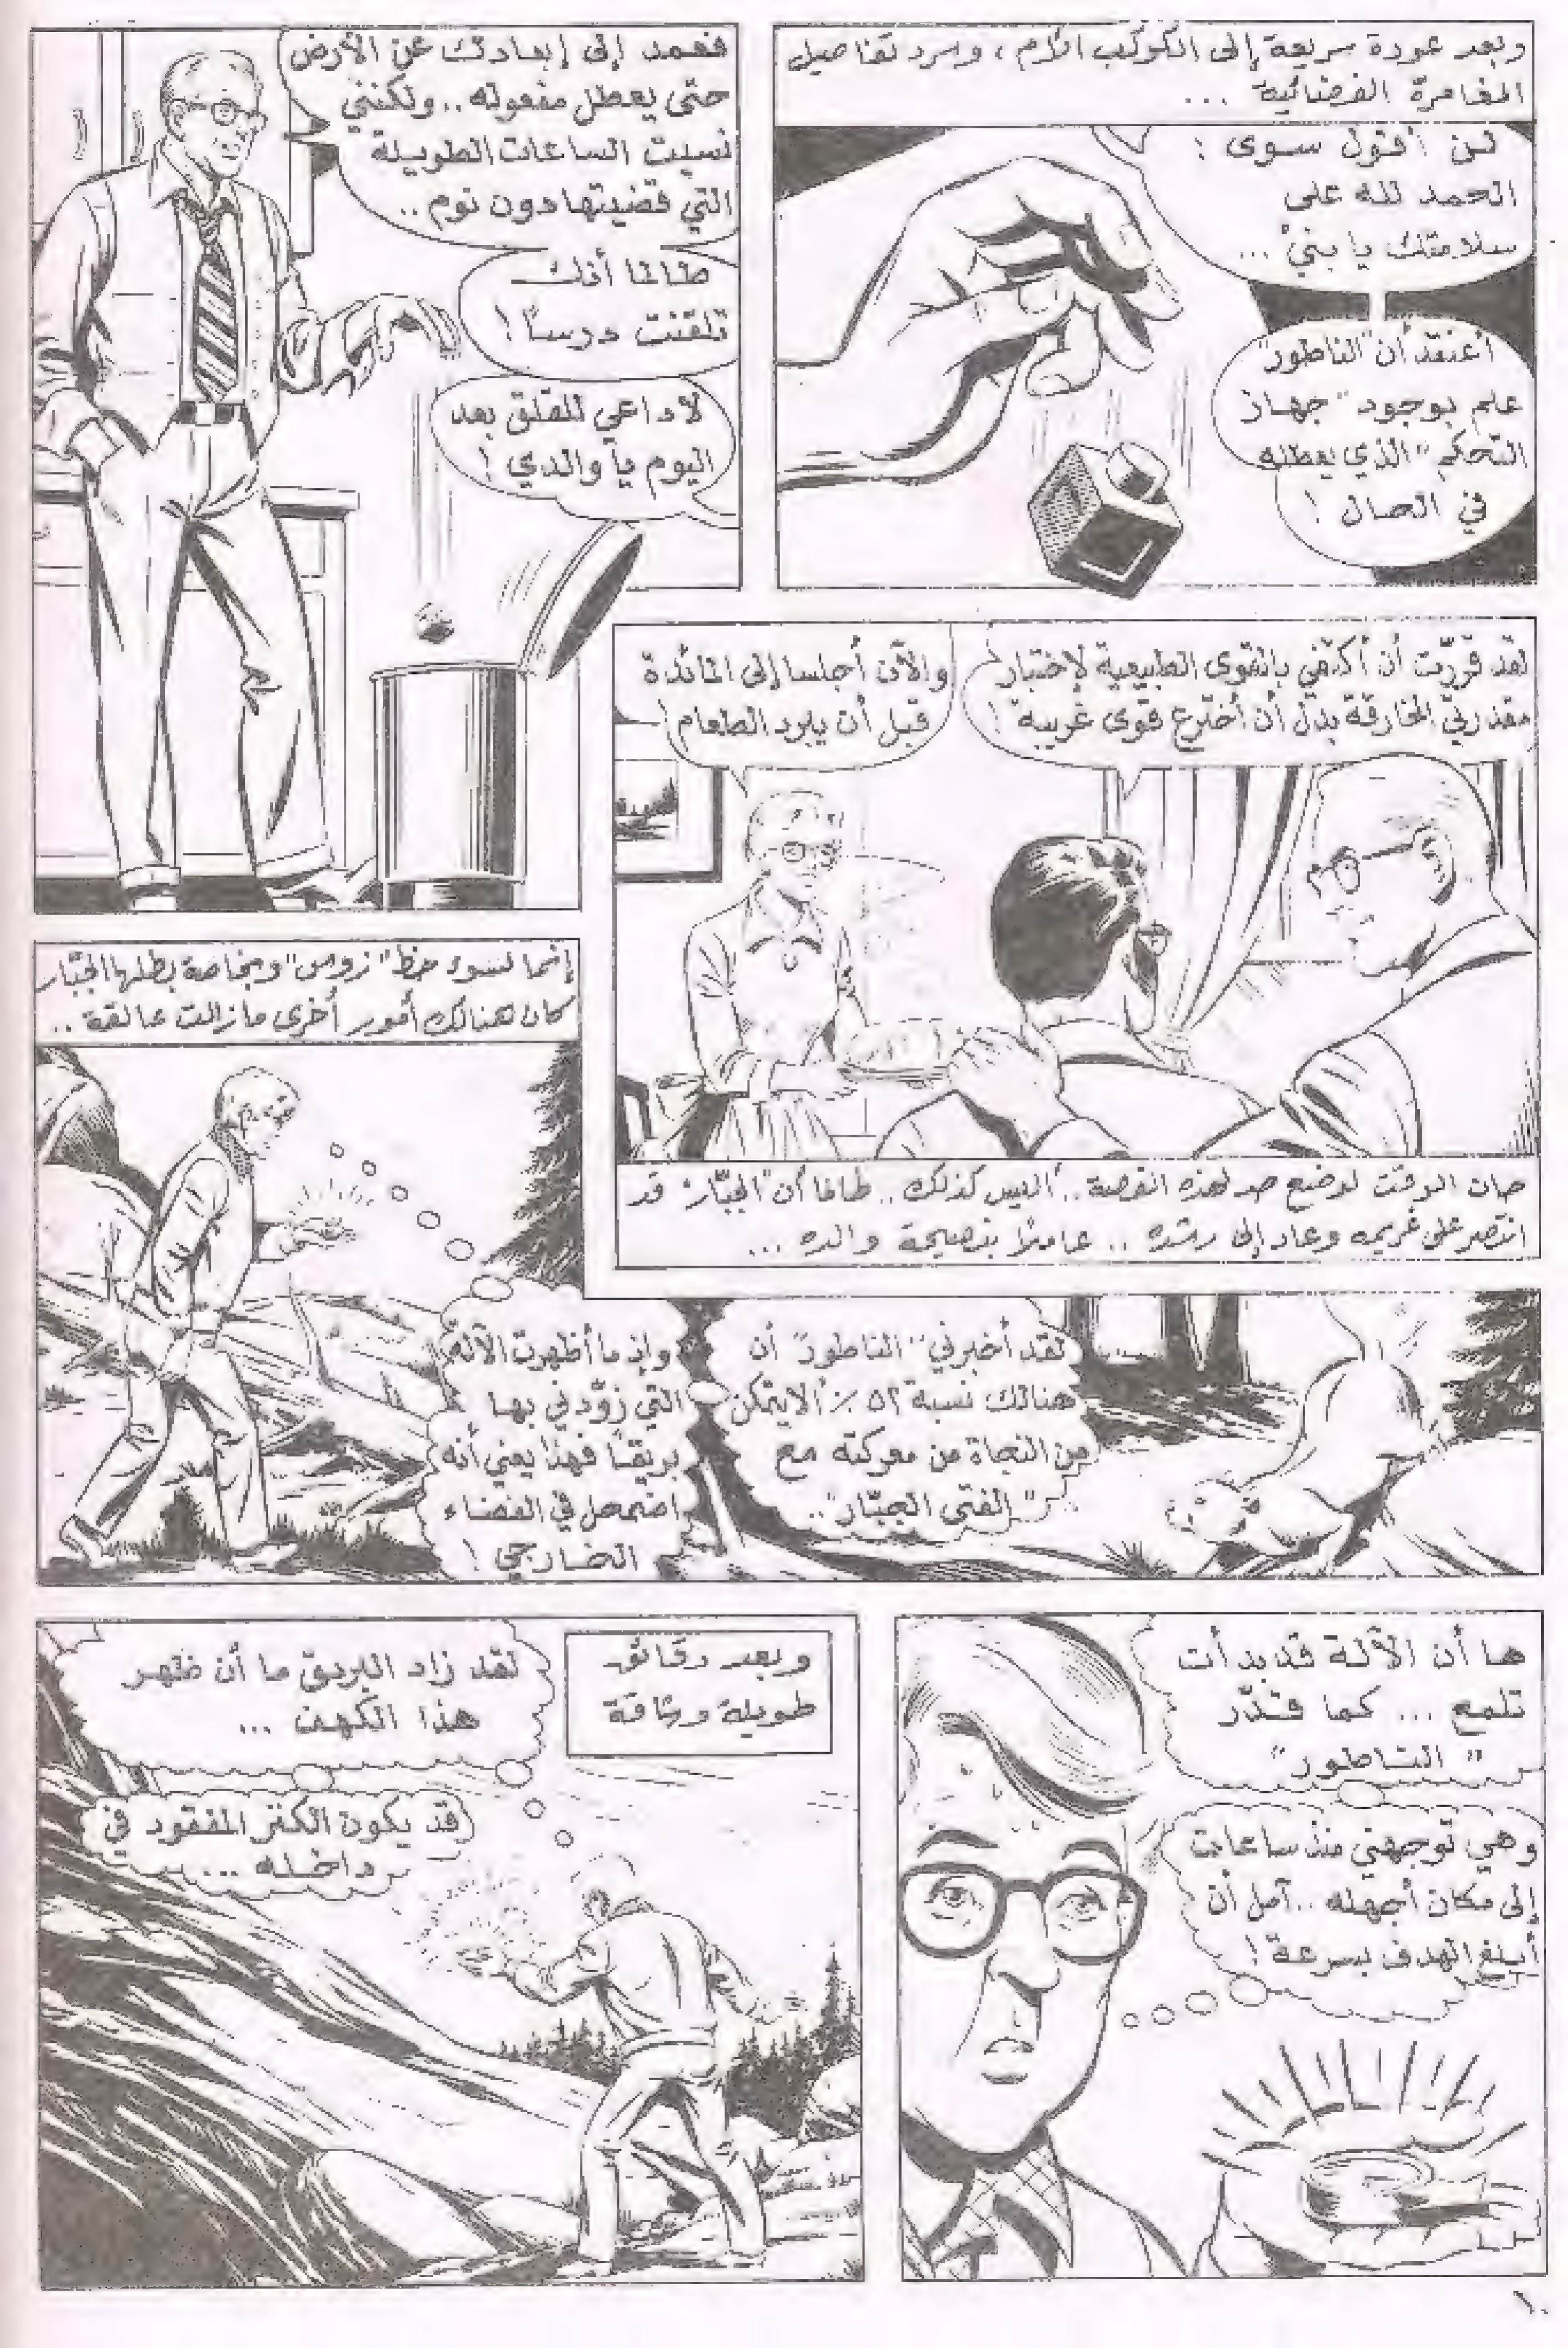 وبعد عودة سريعة إلى الكوكب الأم ، وسرد تفاصيل
المغامرة الفضائية ...
لن أقول سوى :
الحمد لله على
سلامتك يا بنيّ ...
أعتقد أن "الناطور"
علم بوجود "جهاز
التحكم" الذي يعطله
في الحال !
فعمد إلى إبعادك عن الأرض
حتى يعطل مفعوله .. ولكنني
نسيت الساعات الطويلة
التي قضيتها دون نوم ..
طالما أنك
تلقنت درسًا !
لا داعي للقلق بعد
اليوم يا والدي !
لقد قررّت أن أكتفي بالقوى الطبيعية لإختبار
مقدرتي الخارقة بدل أن أخترع قوى غريبة !
والآن أجلسا إلى المائدة
قبل أن يبرد الطعام !
حان الوقت لوضع حد لهذه القصة .. أليس كذلك .. طالما أن "الجبّار" قد
انتصر على غريمه وعاد إلى رشده .. عاملاً بنصيحة والده ...
إنما لسوء حظ "زوس" وبخاصة بطلها الجبّار
كان هنالك أمور أخرى ما زالت عالقة ..
لقد أخبرني "الناطور" أن
هنالك نسبة ٥٢ ٪ ألا يتمكن
من النجاة من معركته مع
"الفتى الجبّار" ..
وإذ ما أظهرت الآلة
التي زوّدني بها
بريقًا فهذا يعني أنه
اضمحل في الفضاء
الخارجي !
ها أن الآلة قد بدأت
تلمع ... كما قدّر
"الناطور"
وهي توجهني منذ ساعات
إلى مكان أجهله .. آمل أن
أبلغ الهدف بسرعة !
وبعد دقائق
طويلة وشاقة
لقد زاد البريق ما أن ظهر
هذا الكهف ...
قد يكون الكنز المفقود في
داخله ...
١٠